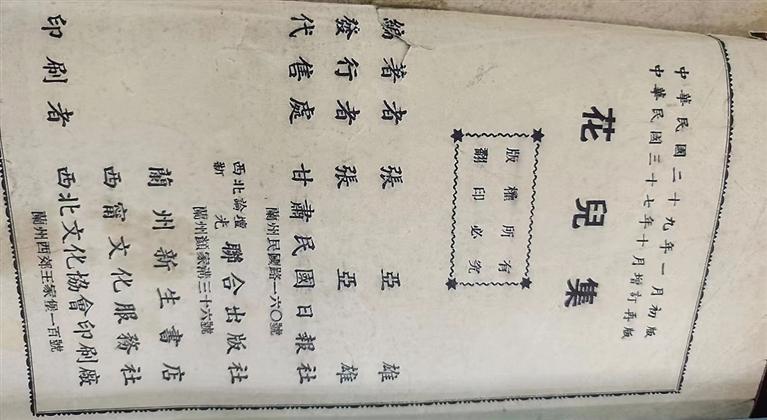 中華民國二十九年一月初版
中華民國三十七年十月增訂再版
花兒集
版權所有
翻印必究
編著者 張亞雄
發行者 張亞雄
代售處 甘肅民國日報社
蘭州民國路一六〇號
西北論壇
新光 聯合出版社
蘭州顏家溝三十六號
蘭州新生書店
西甯文化服務社
印刷者 西北文化協會印刷廠
蘭州西郊王家堡一百號